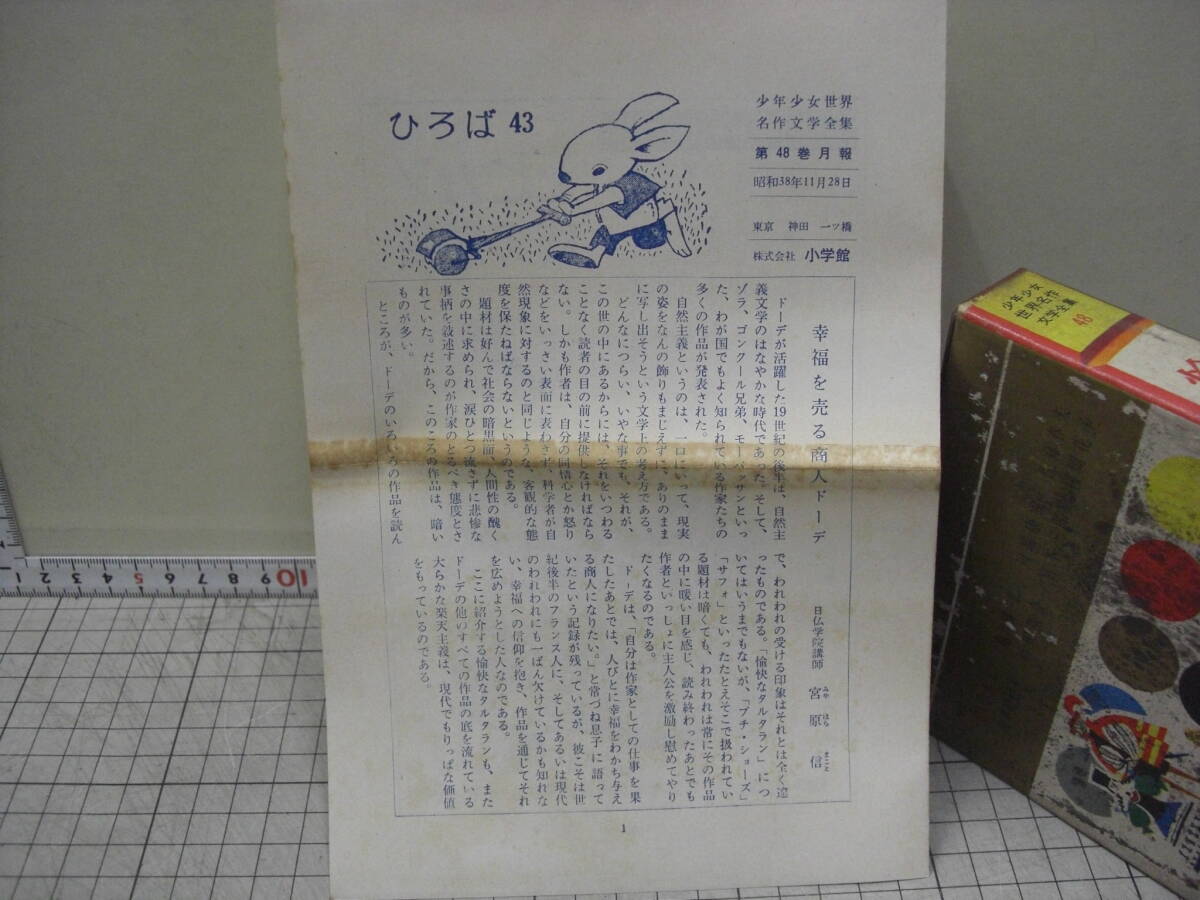 ひろば 43
少年少女世界
名作文学全集
第48巻月報
昭和38年11月28日
東京 神田 一ッ橋
株式会社 小学館
幸福を売る商人ドーデ
日仏学院講師 宮原 信
みや はら
ドーデが活躍した19世紀の後半は、自然主
義文学のはなやかな時代であった。そして、
ゾラ、ゴンクール兄弟、モーパッサンといっ
た、わが国でもよく知られている作家たちの
多くの作品が発表された。
自然主義というのは、一口にいって、現実
の姿をなんの飾りもまじえずに、ありのまま
に写し出そうという文学上の考え方である。
どんなにつらい、いやな事でも、それが、
この世の中にあるからには、それをいつわる
ことなく読者の目の前に提供しなければなら
ない。しかも作者は、自分の同情心とか怒り
などをいっさい表面に表わさず、科学者が自
然現象に対するのと同じような、客観的な態
度を保たねばならないというのである。
題材は好んで社会の暗黒面、人間性の醜く
さの中に求められ、涙ひとつ流さずに悲惨な
事柄を叙述するのが作家のとるべき態度とさ
れていた。だから、このころの作品は、暗い
ものが多い。
ところが、ドーデのいろいろの作品を読ん
で、われわれの受ける印象はそれとは全く違
ったものである。「愉快なタルタラン」につ
いてはいうまでもないが、「プチ・ショーズ」
「サフォ」といったたとえそこで扱われてい
る題材は暗くても、われわれは常にその作品
の中に暖い目を感じ、読み終わったあとでも
作者といっしょに主人公を激励し慰めてやり
たくなるのである。
ドーデは、「自分は作家としての仕事を果
たしたあとでは、人びとに幸福をわかち与え
る商人になりたい。」と常づね息子に語って
いたという記録が残っているが、彼こそは世
紀後半のフランス人に、そしてあるいは現代
のわれわれにも一ばん欠けているかも知れな
い、幸福への信仰を抱き、作品を通じてそれ
を広めようとした人なのである。
ここに紹介する愉快なタルタランも、また
ドーデの他のすべての作品の底を流れている
大らかな楽天主義は、現代でもりっぱな価値
をもっているのである。
1
少年少女
世界名作
文学全集
48
1 2 3 4 5 6 7 8 9 10